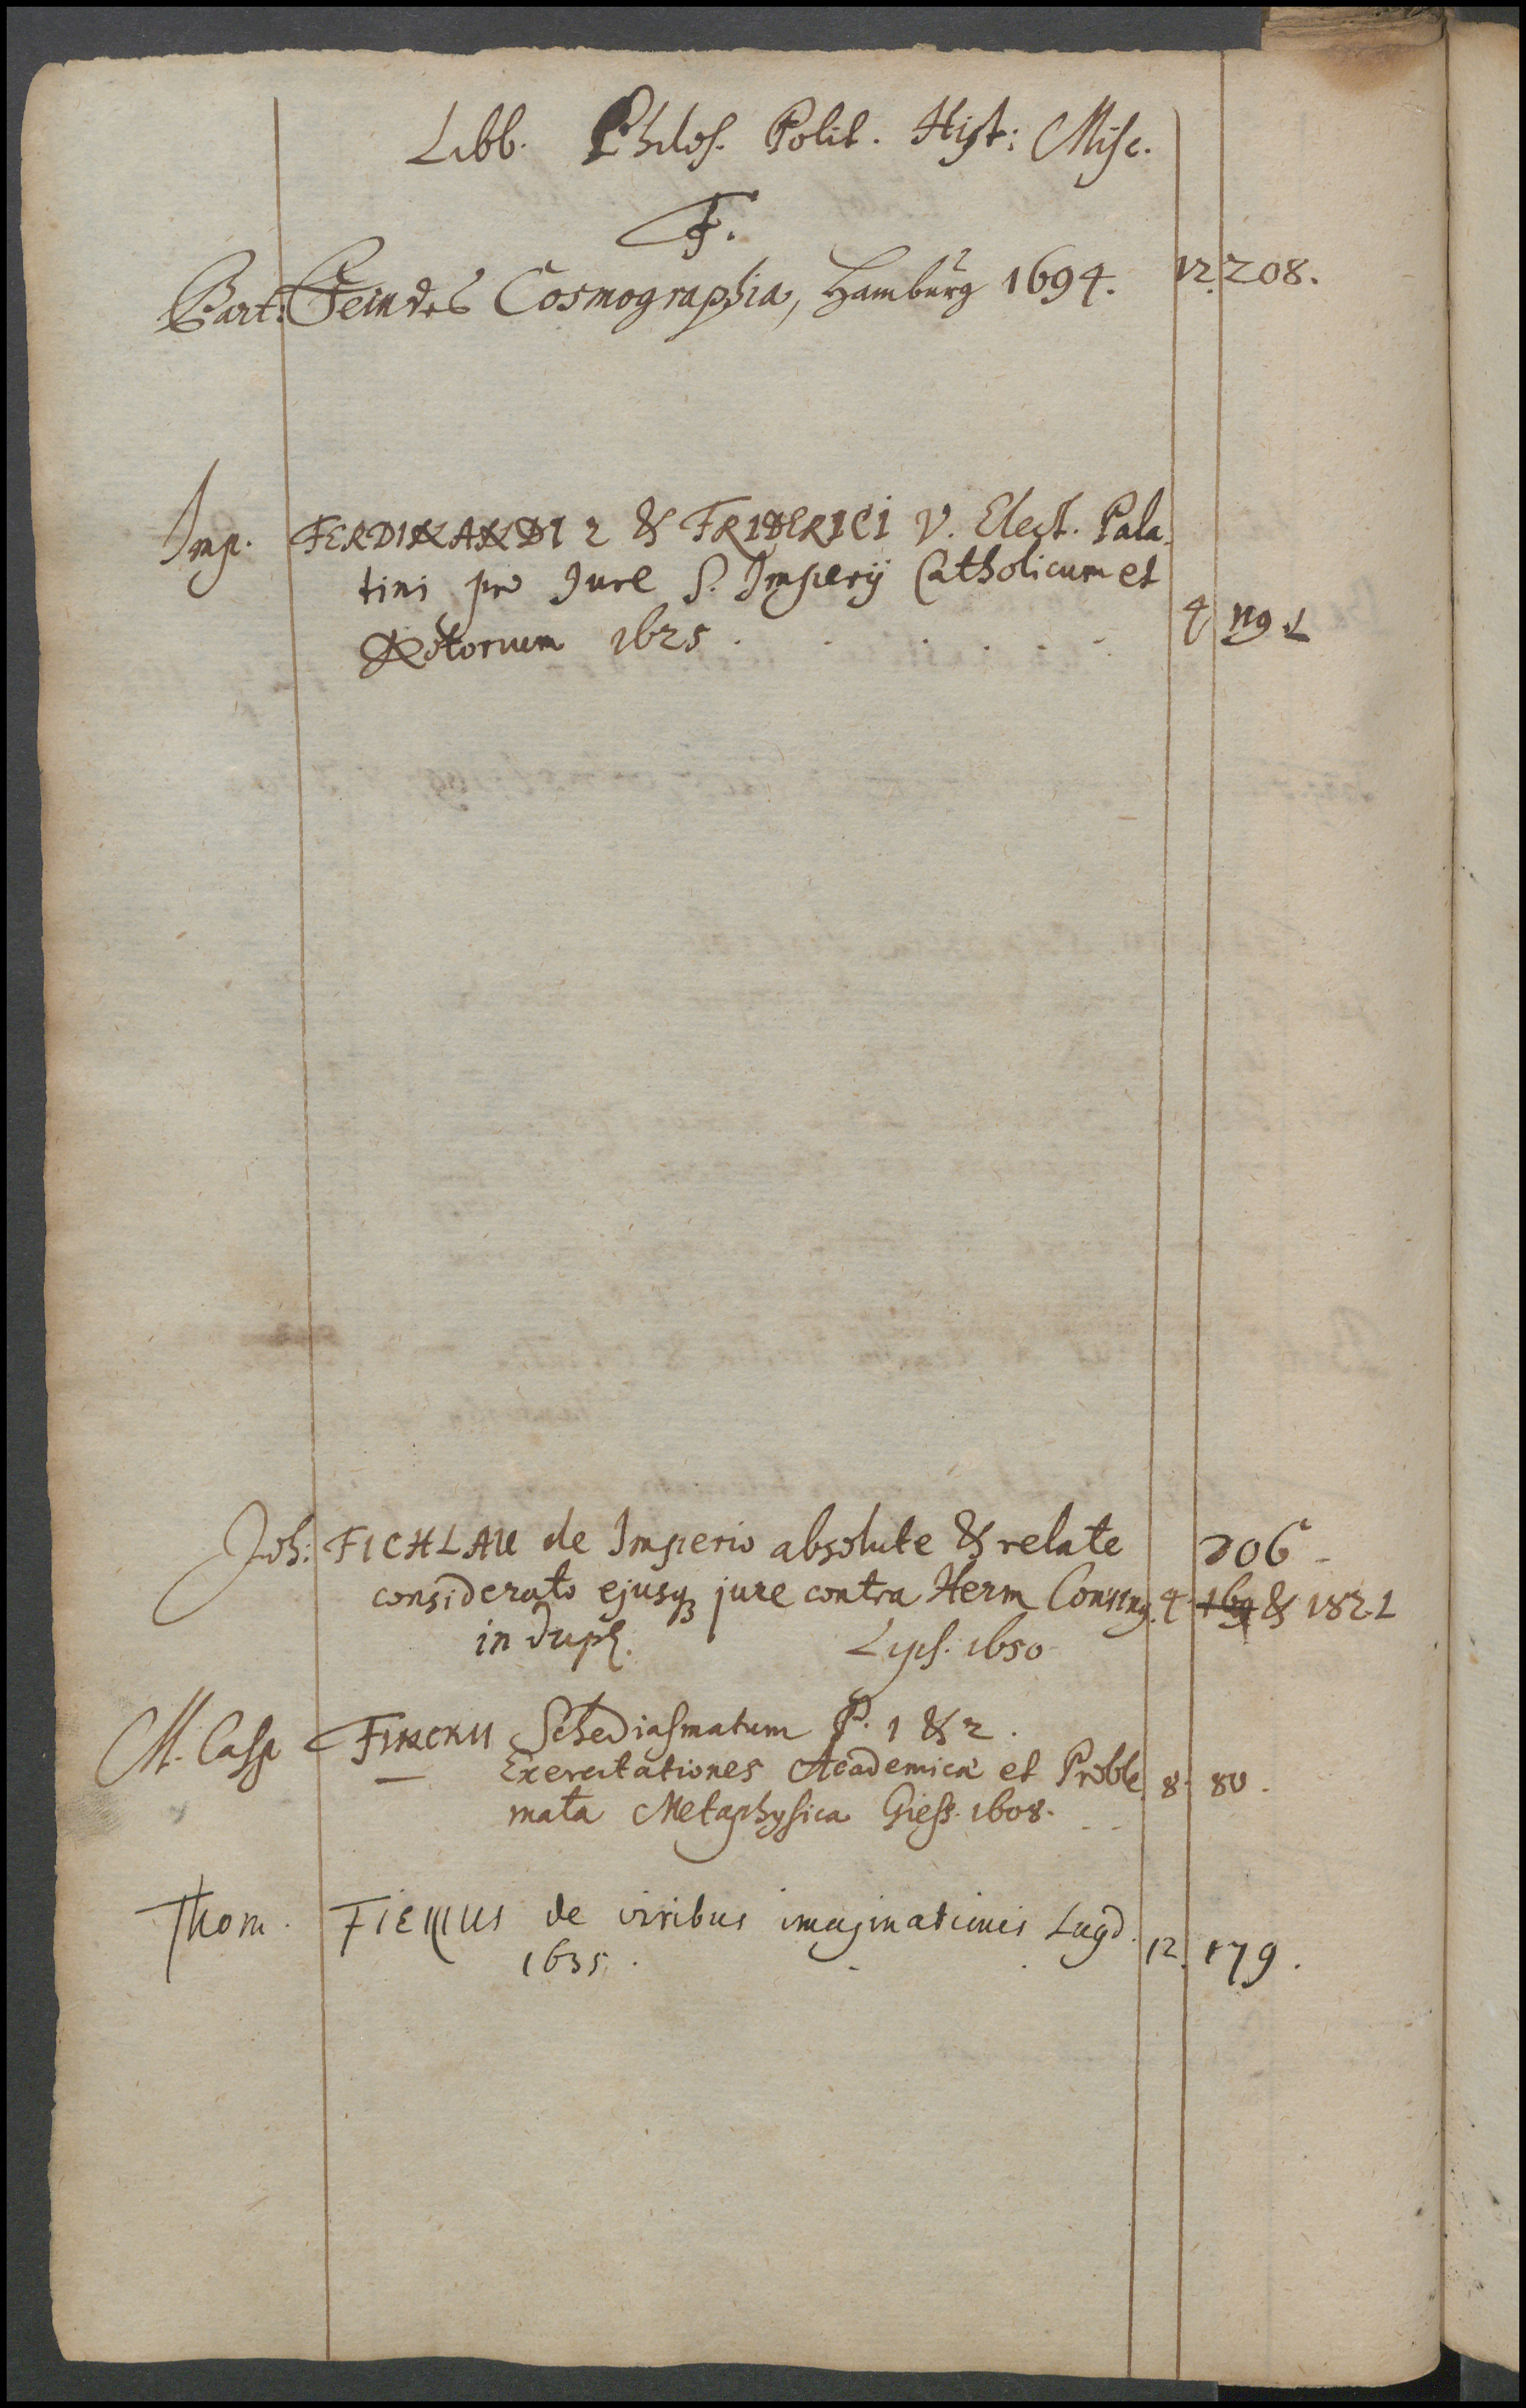 Libb. Philos. Polit. Hist: Misc.
F.
Bart: Feindes Cosmographia, Hamburg 1694. 12. 208.
Imp. FERDINANDI 2 & FRIDERICI V. Elect. Pala-
tini pro Jure S. Imperij Catholicum et
Notorium 1625 . . . . . . 4 119.
Joh: FICHLAU de Imperio absolute & relate 306 -
considerato ejusq jure contra Herm Conring. 4. 169 & 182
in dupl. Lips. 1650
M. Casp FINCKII Schediasmatum P. 1 & 2.
— Exercitationes Academicae et Proble 8. 80.
mata Metaphysica Giess. 1608. . .
Thom. FIENUS de viribus imaginationis Lugd.
1635. . . 12. 179.